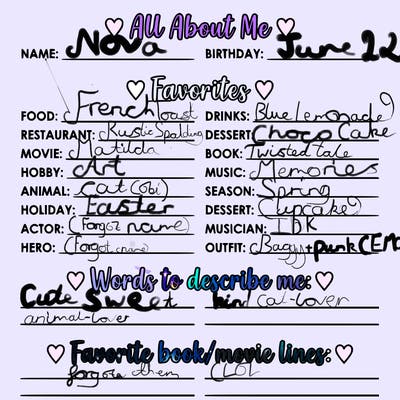 All About Me
NAME: Nova BIRTHDAY: June 22
Favorites
FOOD: French toast DRINKS: Blue lemonade)
RESTAURANT: Rustic Spalding DESSERT: Choco Cake
MOVIE: Matilda BOOK: Twisted tale
HOBBY: Art MUSIC: Memories
ANIMAL: Cat (obi) SEASON: Spring
HOLIDAY: Easter DESSERT: (Cupcake)
ACTOR: (Forgor name) MUSICIAN: IDK
HERO: (Forgot name) OUTFIT: (Baggy+punk(EMO
Words to describe me:
Cute Sweet kind cat-lover
animal-lover
Favorite book/movie lines:
forgor them (LOL